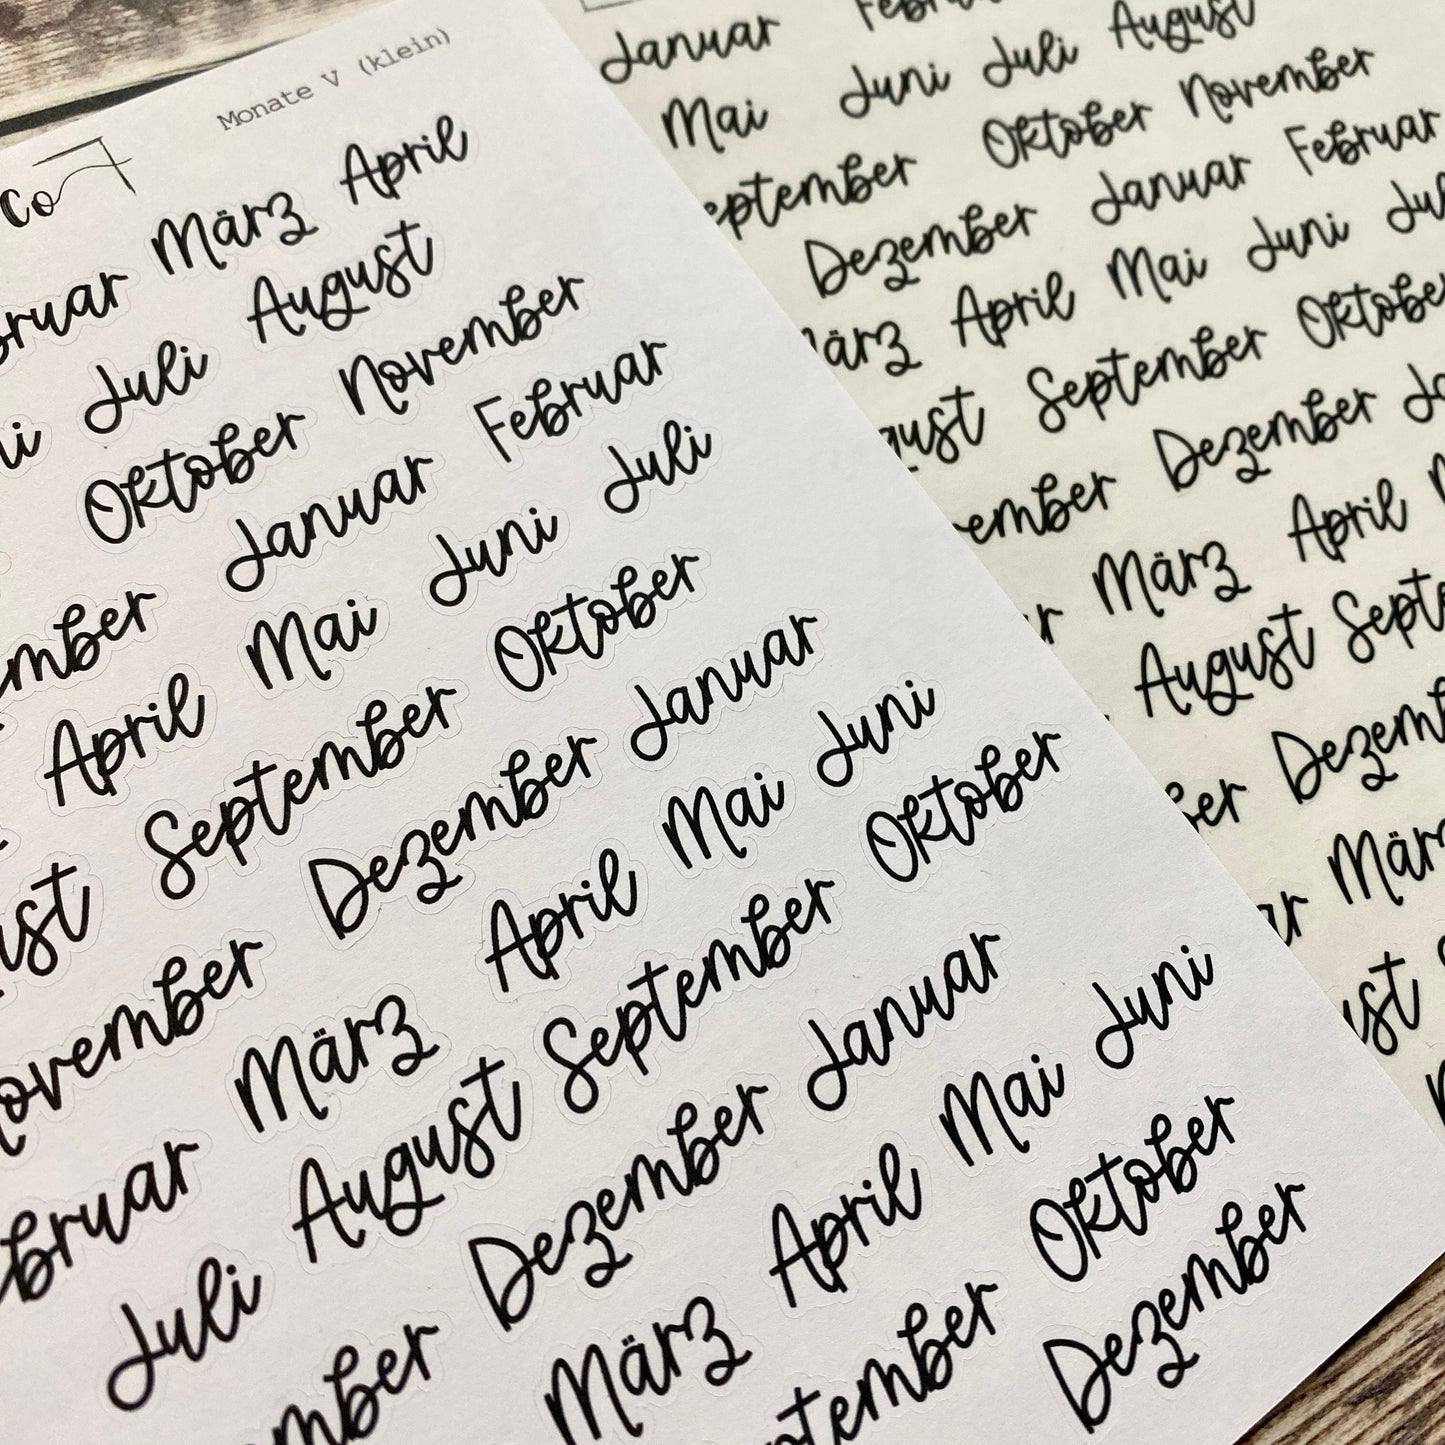 Monate V (klein)
Co
bruar März April
ni Juli August
Oktober November
mber Januar Februar
April Mai Juni Juli
ust September Oktober
ovember Dezember Januar
bruar März April Mai Juni
Juli August September Oktober
mber Dezember Januar
März April Mai Juni
ptember Oktober
Dezember
Januar Febru
Mai Juni Juli August
eptember Oktober November
Dezember Januar Februar
ärz April Mai Juni Jul
gust September Oktober
ember Dezember Ja
r März April
August Septe
ber Dezemb
ar März
ust